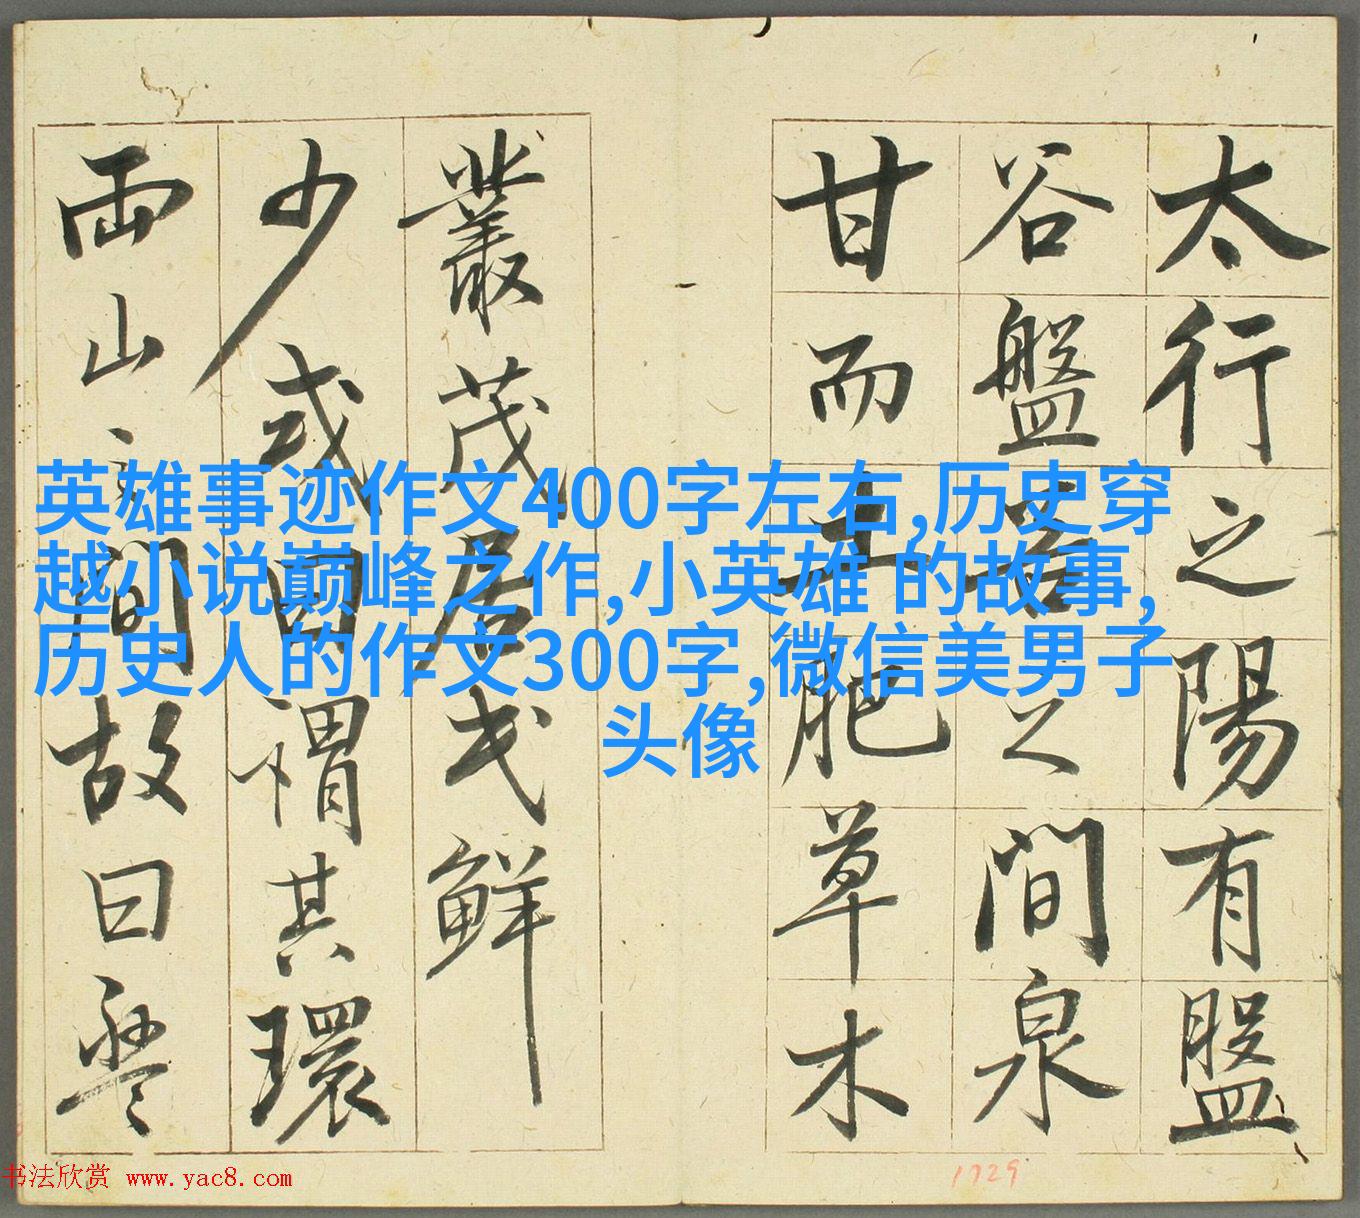 太行之陽有盤
谷盤谷之間泉
甘而土肥草木
叢茂居民鮮
少或曰謂其環
兩山之間故曰盤
英雄事迹作文400字左右,历史穿
越小说巅峰之作,小英雄 的故事,
历史人的作文300字,微信美男子
头像
书法欣赏 www.yac8.com
1729